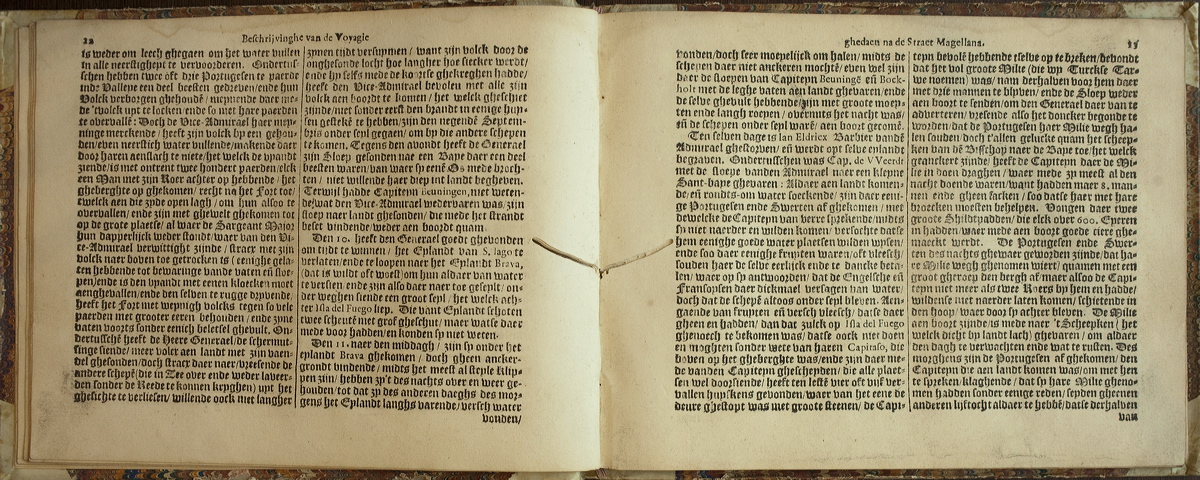 12
Beschrijvinghe van de Voyagie
is weder om leech ghegaen om het water vullen
in alle neerstigheyt te vervoorderen. Ondertus-
schen hebben twee oft drie Portugesen te paerde
inde Valleye een deel beesten gedreven/ende hun
Volck verborgen ghehoudē/ meynende daer me-
de 't volck upt te locken ende so met hare paerden
te overvallē: Doch de Vice-Admirael haer mey-
ninge merckende/ heeft zijn volck by een gehou-
den/even neerstich water vullende/makende daer
door haren aenslach te niete/het welck de vyandt
ziende/is met ontrent twee hondert paerden/elck
een Man met zijn Roer achter op hebbende/ het
gheberghte op ghekomen/ recht na het Fort toe/
twelck aen die zyde open lagh/ om hun alsoo te
overvallen/ ende zijn met ghewelt ghekomen tot
op de grote plaetse/ al waer de Sargeant Major
hun dapperlijck weder stondt/ waer van den Vi-
ce-Admirael verwittight zijnde/ straet met zijn
volck naer boven toe getrocken is (eenighe gela-
ten hebbende tot bewaringe vande vaten en floe-
pen/ende is den vyandt met eenen kloecken moet
aenghevallen/ende den selven te rugge dryvende/
heeft het Fort met weynigh volcks tegen so vele
paerden met grooter eeren behouden / ende zijne
vaten voorts sonder eenich beletsel ghevult. On-
dertusschē heeft de Heere Generael/de schermut-
singe siende/ meer volcx aen landt met zijn vaen-
del ghesonden/doch straet daer naer/vreesende de
andere schepē (die in Zee over ende weder laveer-
den sonder de Reede te konnen krijghen) uyt het
ghesichte te verliesen/ willende oock niet langher
zijnen tijdt versuymen / want zijn volck door de
onghesonde locht hoe langher hoe siecker werdt/
ende hy selfs mede de kortse ghekreghen hadde/
heeft den Vice-Admirael bevolen met alle zijn
volck aen boordt te komen / het welck gheschiet
zijnde/niet sonder eerst den brandt in eenige huy-
sen gestekē te hebben/zijn den negende Septem-
bris onder seyl gegaen/ om by die andere schepen
te komen. Tegens den avondt heeft de Generael
zijn Sloep gesonden nae een Baye daer een deel
beesten waren/van waer sy eenē Os mede broch-
ten / niet willende haer diep int landt begheven.
Terwijl hadde Capiteyn Beuningen, niet weten-
de/wat den Vice-Admirael wedervaren was/zijn
sloep naer landt ghesonden/ die mede het strandt
beset vindende/ weder aen boordt quam.
Den 10. heeft den Generael goedt ghevonden
om tijdt te winnen / het Eylandt van S. Iago te
verlaten/ende te loopen naer het Eylandt Brava,
(dat is wildt oft woest) om hun aldaer van water
te versien/ ende zijn also daer naer toe geseylt / on-
der weghen siende een groot seyl / het welck ach-
ter Isla del Fuego liep. Die vant Eylandt schoten
twee scheutē met grof gheschut/ maer watse daer
mede voor hadden/en konden sy niet weten.
Den 11. naer den middagh / zijn sy onder het
eylandt Brava ghekomen / doch gheen ancker-
grondt vindende/ midts het meest al steyle Klip-
pen zijn / hebben zy't des nachts over en weer ge-
houden tot dat zy des anderen daeghs des mor-
gens het Eylandt langhs varende/ versch water
vonden/
ghedaen na de Straet Magellana.
13
vonden/doch seer moeyelijck om halen/ midts de
schepen daer niet anckeren mochtē/ even wel zijn
daer de sloepen van Capiteyn Beuningē eñ Bock-
holt met de leghe vaten aen landt ghevaren/ ende
de selve ghevult hebbende/zijn met groote moey-
ten ende langh roeyen / overmits het nacht was/
eñ de schepen onder seyl warē/ aen boort gecomē.
Ten selven dage is Ian Eldricx Barbier vandē
Admirael ghestorven/ eñ werdt opt selve eylandt
begraven. Ondertusschen was Cap. de V Veerdt
met de sloepe vanden Admirael naer een kleyne
Sant-baye ghevaren: Aldaer aen landt komen-
de/eñ rondts-om water soeckende/ zijn daer eeni-
ge Portugesen ende Swerten af ghekomen / met
dewelcke de Capiteyn van verre sprekende/midts
sy niet naerder en wilden komen/ versochte datse
hem eenighe goede water plaetsen wilden wysen/
ende soo daer eenighe fruyten waren/oft vleesch/
souden haer de selve eerlijck ende te dancke beta-
len / waer op sy antwoordden / dat de Engelsche eñ
Fransoysen daer dickmael versagen van water/
doch dat de schepē altoos onder seyl bleven. Aen-
gaende van fruyten eñ versch vleesch/ datse daer
gheen en hadden / dan dat zulck op Isla del Fuego
genoech te bekomen was/ datse oock niet doen
en moghten sonder wete van haren Capitaso, die
boven op het gheberghte was/ende zijn daer me-
de vanden Capiteyn ghescheyden / die alle plaet-
sen wel doorsiende/ heeft ten lestē vier oft vijf ver-
vallen huyskens gevonden/waer van het eene de
deure ghestopt was met groote steenen/ de Capi-
teyn bevolē hebbende tselve op te breken/bevondt
dat het vol groote Milie (die wy Turckse Tar-
we noemen) was/ nam derhalven voor hem daer
met drie mannen te blyven / ende de Sloep weder
aen boort te senden/om den Generael daer van te
adverteren/ vresende also het doncker begonde te
worden dat de Portugesen haer Milie wegh ha-
len souden/doch t'allen gelucke quam het scheep-
ken van dē Bisschop naer de Baye toe/ het welck
geanckert zijnde/ heeft de Capiteyn daer de Mi-
lie in doen draghen/ waer mede zy meest al den
nacht doende waren/want hadden maer 8. man-
nen ende gheen sacken / soo datse haer met hare
broecken moesten behelpen. Vongen daer twee
groote Schildtpadden/ die elck over 600. Eyeren
in hadden/waer mede aen boort goede ciere ghe-
maeckt werdt. De Portugesen ende Swer-
ten des nachts ghewaer geworden zijnde/dat ha-
re Milie wegh ghenomen wiert/ quamen met een
groot gheroep den bergh af maer alsoo de Capi-
teyn met meer als twee Roers by hem en hadde/
wildense niet naerder laten komen/ schietende in
den hoop / waer door sy achter bleven. De Milie
aen boort zijnde/ is mede naer 't Scheepken (het
welck dicht by landt lach) ghevaren/ om aldaer
den dagh te verwachten ende wat te rusten. Des
morghens zijn de Portugesen af ghekomen / den
Capiteyn die aen landt komen was/om met hen
te spreken/klaghende / dat sy hare Milie gheno-
men hadden sonder eenige reden/ seyden gheenen
anderen lijftocht aldaer te hebbē/datse derhalven
van